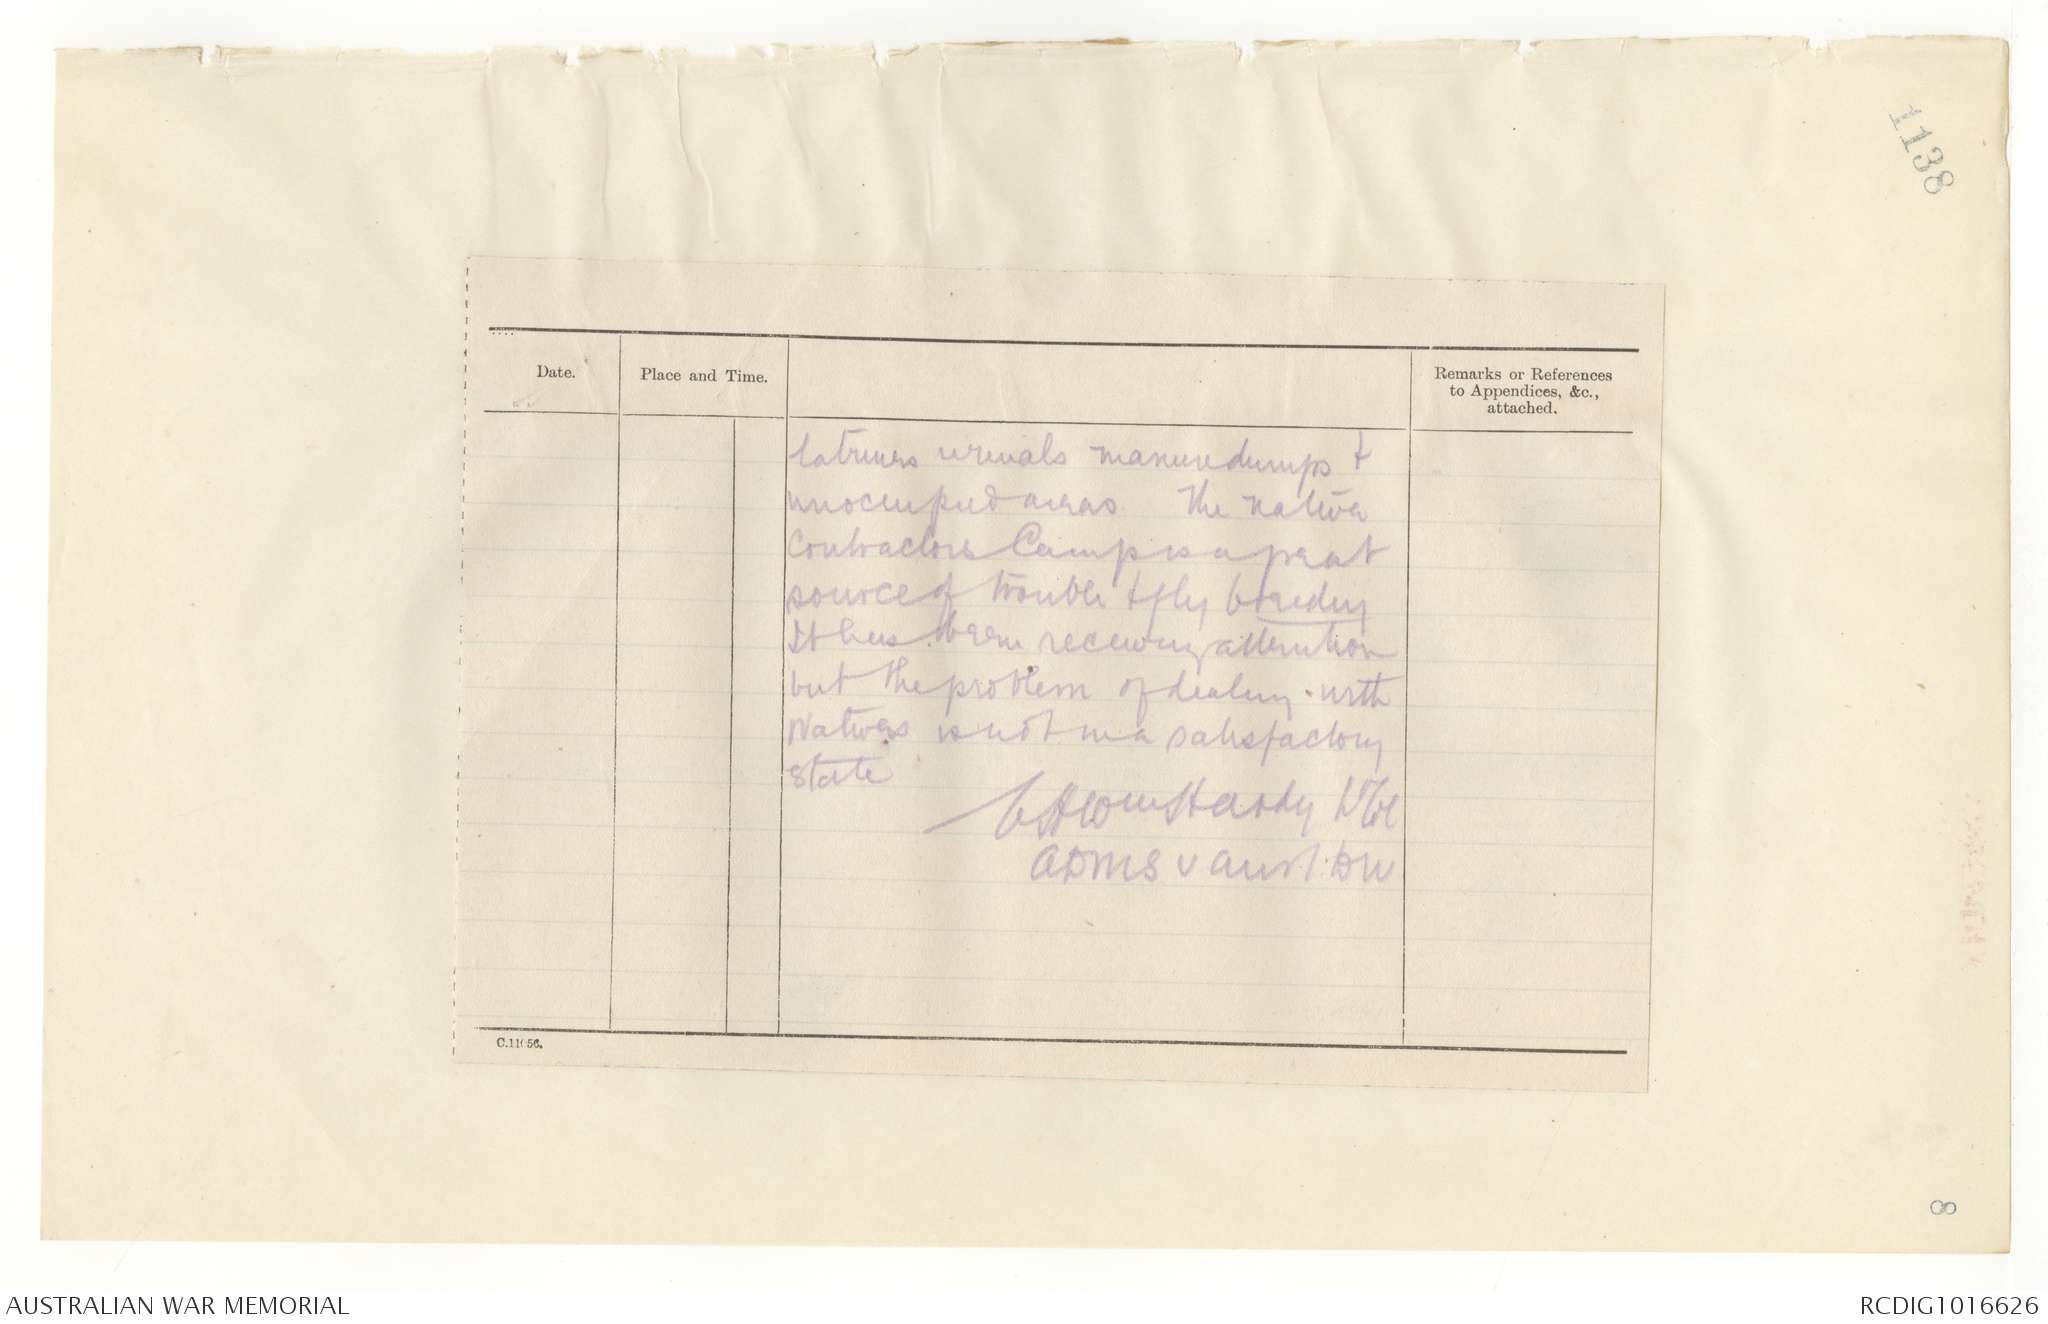 1138
Date.
Place and Time.
Remarks or References
to Appendices, &c.,
attached.
latrines urinals manure dumps &
unoccupied areas The native
Contractors Camp is a great
source of trouble & fly breeding
It has been receiving attention
but the problem of dealing with
Natives is not in a satisfactory
state
Hardy
ADMS V Aust Div
C.11056.
8
AUSTRALIAN WAR MEMORIAL
RCDIG1016626